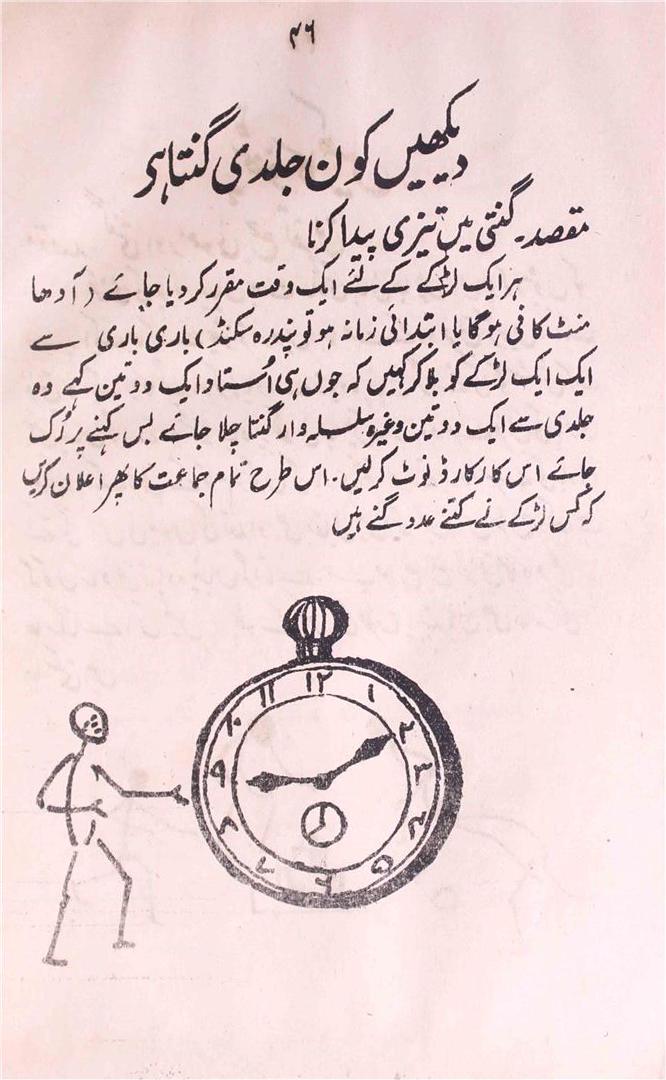 ۴۶
دیکھیں کون جلدی گنتا ہے
مقصد۔ گنتی میں تیزی پیدا کرنا
ہر ایک لڑکے کے لئے ایک وقت مقرر کر دیا جائے (آدھا
منٹ کافی ہوگا یا ابتدائی زمانہ ہو تو پندرہ سکنڈ) باری باری سے
ایک ایک لڑکے کو بلا کر کہیں کہ جوں ہی اُستاد ایک دو تین کہے وہ
جلدی سے ایک دو تین وغیرہ سلسلہ وار گنتا چلا جائے بس کہنے پر رُک
جائے اس کا رکارڈ نوٹ کرلیں۔ اس طرح تمام جماعت کا پھر اعلان کریں
کہ کس لڑکے نے کتنے عدد گنے ہیں
۱۲
۱۱
۱
۱۰
۲
۹
۳
۸
۴
۷
۵
۶